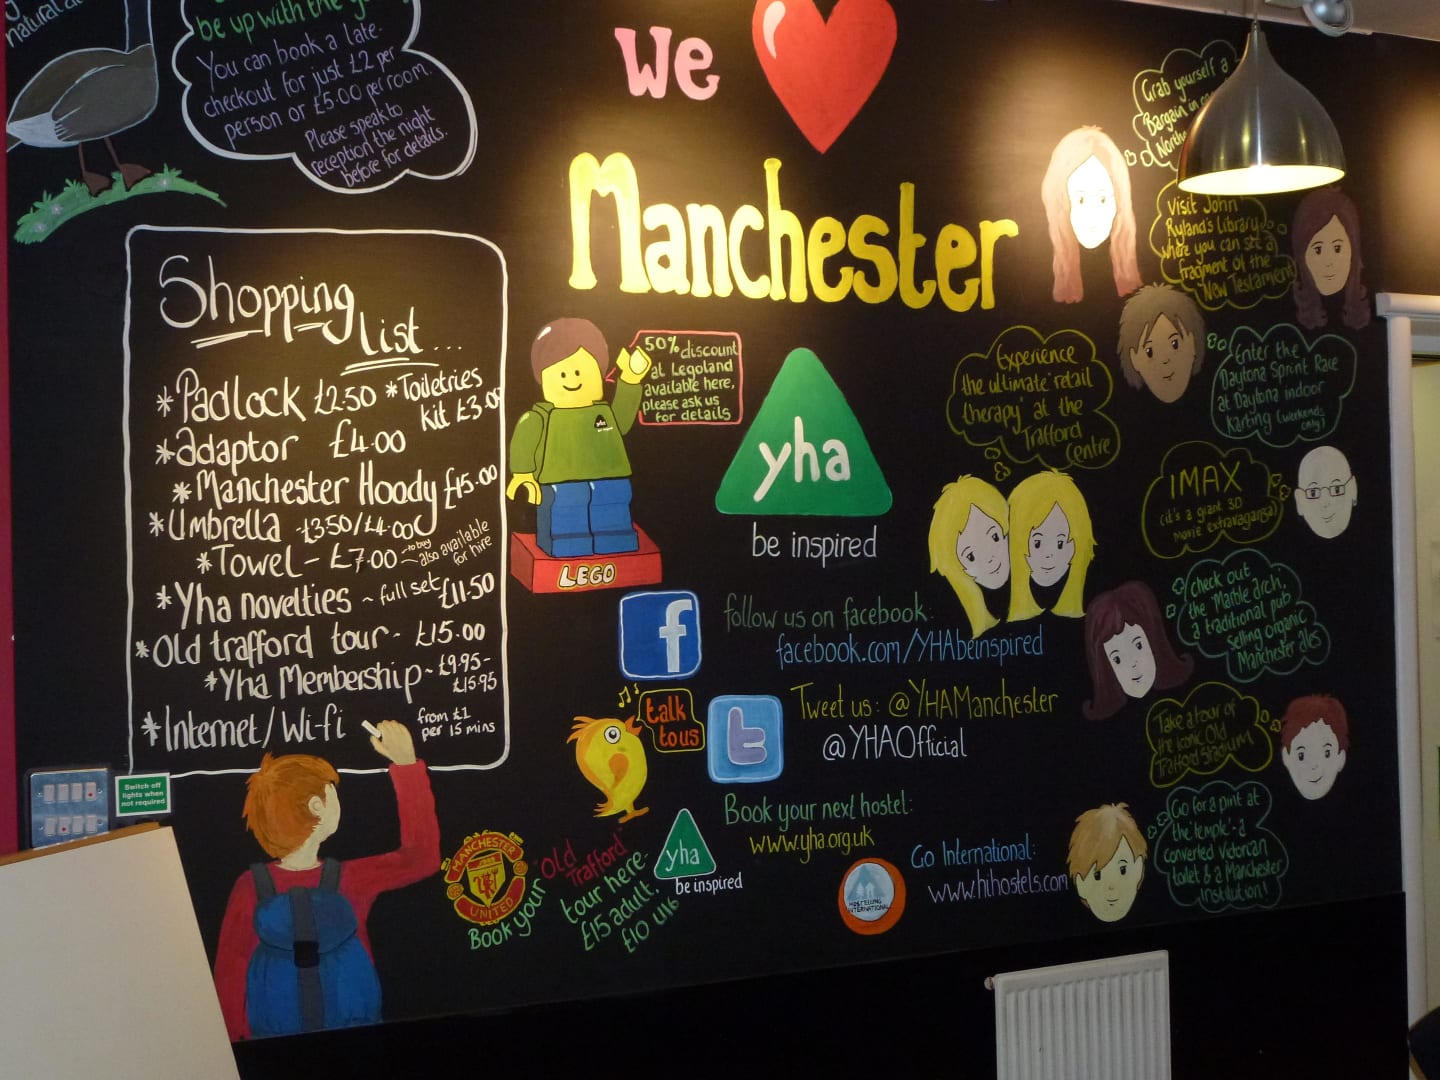 natural
be up with the
You can book a late
checkout for just £2 per
person or £5.00 per room.
Please speak to
reception the night
before for details.
We
Manchester
Shopping
List...
*Padlock £2.50
*Toiletries
kit £3.00
*adaptor £4.00
*Manchester Hoody £15.00
*Umbrella - £3.50/£4.00
*Towel - £7.00 - to buy
also available
for hire
*Yha novelties ~ full set £11.50
*Old trafford tour - £15.00
*Yha Membership ~ £9.95 -
£15.95
*Internet/Wi-fi
from £1
per 15 mins
Switch off
lights when
not required
50% discount
at Legoland
available here,
please ask us
for details
yha
LEGO
yha
be inspired
f
follow us on facebook:
facebook.com/YHAbeinspired
talk
to us
t
Tweet us: @YHAManchester
@YHAOfficial
Book your next hostel:
www.yha.org.uk
MANCHESTER
UNITED
Book your
'Old
Trafford'
tour here-
£15 adult.
£10 U16
yha
be inspired
HOSTELLING
INTERNATIONAL
Go International:
www.hihostels.com
Grab yourself a
Bargain in
North
Visit John
Ryland's Library
where you can see a
fragment of the
'New Testament'
Experience
the ultimate 'retail
therapy' at the
Trafford
Centre
Enter the
Daytona Sprint Race
at Daytona indoor
karting (weekends
only)
IMAX
(it's a giant 3D
movie extravaganza)
check out
the 'Marble arch.
a traditional pub
selling organic
Manchester ales
Take a tour of
the iconic Old
Trafford Stadium
Go for a pint at
the 'temple' - a
converted victorian
toilet & a Manchester
institution!